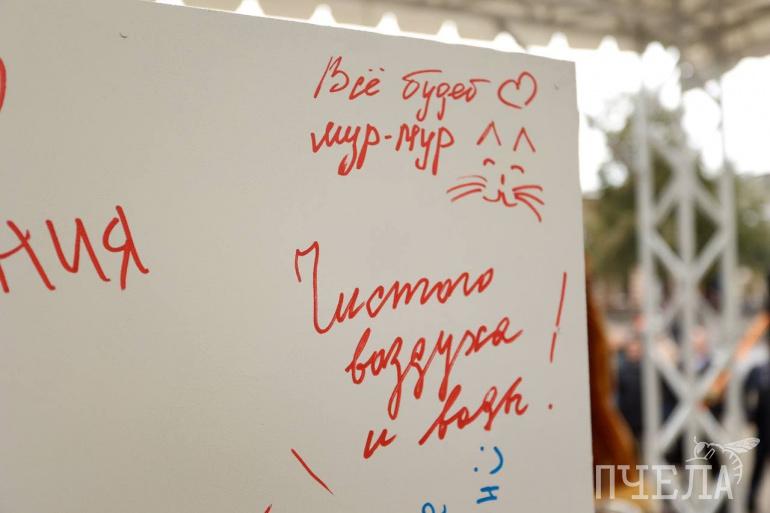 Всё будет
мур-мур
ния
Чистого
воздуха
и воды!
ПЧЕЛА